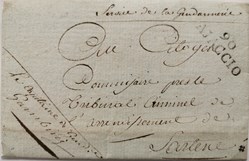 Service de la Gendarmerie
90
AJACCIO
Au Citoyen
Commissaire près le
Tribunal Criminel de
l'arrondissement de
Sartene